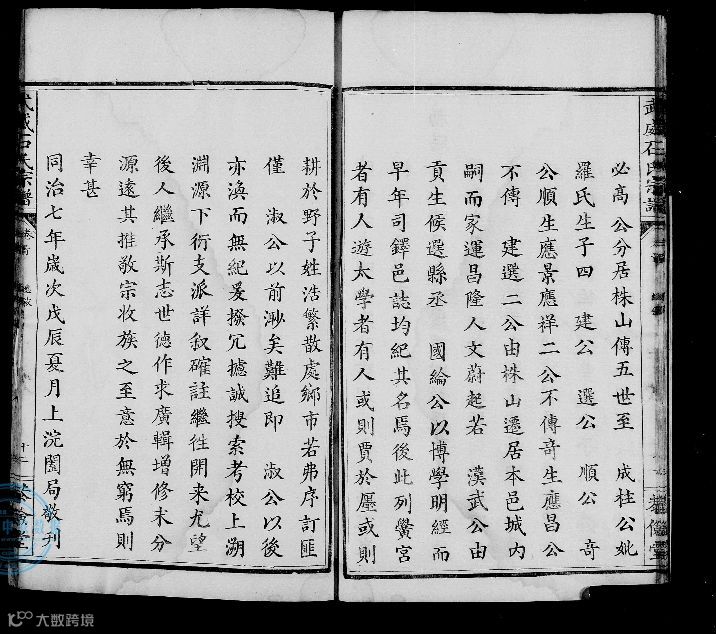 武威石氏宗譜
必高公分居株山傳五世至　成柱公妣
羅氏生子四　建公　選公　順公　奇
公順生應景應祥二公不傳奇生應昌公
不傳　建選二公由株山遷居本邑城内
嗣而家運昌隆人文蔚起若　漢武公由
貢生候選縣丞　國綸公以博學明經而
早年司鐸邑誌均紀其名焉後此列黌宮
者有人遊太學者有人或則賈於廛或則
耕於野子姓浩繁散處鄉市若弗序訂匪
僅　淑公以前渺矣難追即　淑公以後
亦渙而無紀爰撥冗攄誠搜索考校上溯
淵源下衍支派詳叙確註繼往開来尤望
後人繼承斯志世德作求廣輯增修末分
源遠其推敬宗收族之至意於無窮焉則
幸甚
同治七年歲次戊辰夏月上浣闔局敬刊
武威石氏宗譜
大数跨境